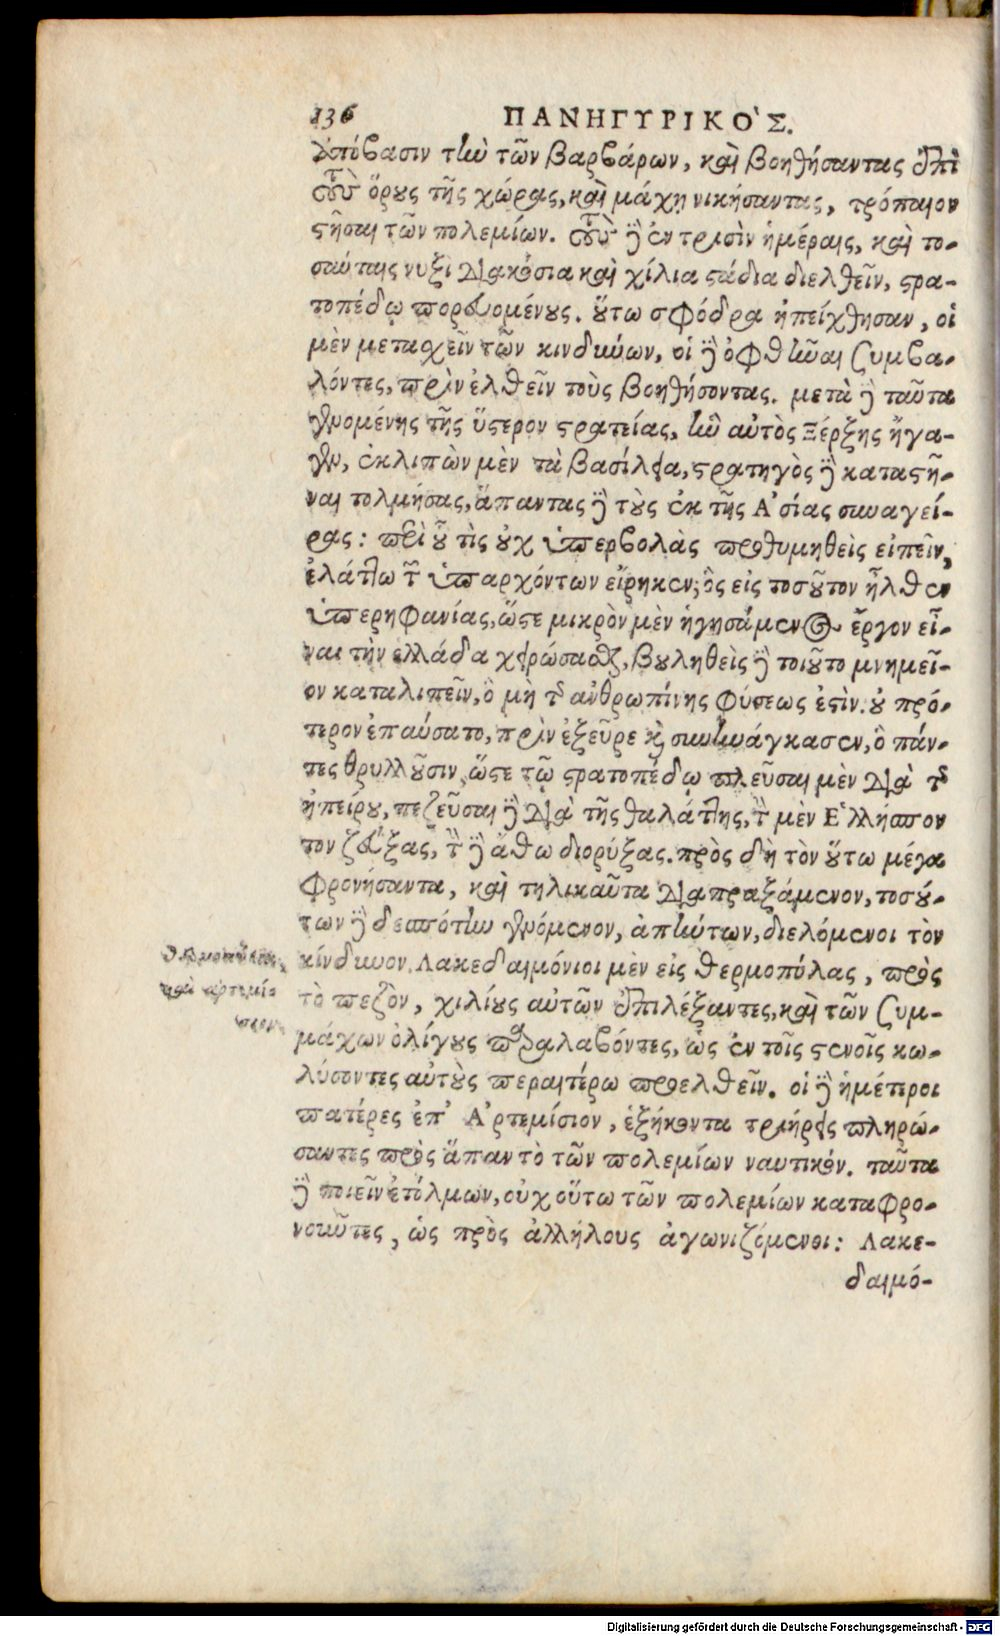 136 ΠΑΝΗΓΥΡΙΚΟ'Σ.
ἀπόβασιν τὴν τῶν βαρβάρων, καὶ βοηθήσαντας ἐπὶ
τοὺς ὅρους τῆς χώρας, καὶ μάχῃ νικήσαντας, τρόπαιον
στῆσαι τῶν πολεμίων. τοὺς δὲ ἐν τρισὶν ἡμέραις, καὶ το-
σαύταις νυξὶ διακόσια καὶ χίλια στάδια διελθεῖν, στρα-
τοπέδῳ πορευομένους. οὕτω σφόδρα ἠπείχθησαν, οἱ
μὲν μετασχεῖν τῶν κινδύνων, οἱ δὲ ὀφθῆναι συμβα-
λόντες, πρὶν ἐλθεῖν τοὺς βοηθήσοντας. μετὰ δὲ ταῦτα
γενομένης τῆς ὕστερον στρατείας, ἣν αὐτὸς Ξέρξης ἤγα-
γεν, ἐκλιπὼν μὲν τὰ βασίλεια, στρατηγὸς δὲ καταστῆ-
ναι τολμήσας, ἅπαντας δὲ τοὺς ἐκ τῆς Ἀσίας συναγεί-
ρας: περὶ οὗ τὶς οὐχ ὑπερβολὰς προθυμηθεὶς εἰπεῖν,
ἐλάττω τῶν ὑπαρχόντων εἴρηκεν; ὃς εἰς τοσοῦτον ἦλθεν
ὑπερηφανίας, ὥστε μικρὸν μὲν ἡγησάμενος ἔργον εἶ-
ναι τὴν ἑλλάδα χειρώσασθαι, βουληθεὶς δὲ τοιοῦτο μνημεῖ-
ον καταλιπεῖν, ὃ μὴ τῆς ἀνθρωπίνης φύσεως ἐστὶν. οὐ πρό-
τερον ἐπαύσατο, πρὶν ἐξεῦρε καὶ συνηνάγκασεν, ὃ πάν-
τες θρυλλοῦσιν, ὥστε τῷ στρατοπέδῳ πλεῦσαι μὲν διὰ τῆς
ἠπείρου, πεζεῦσαι δὲ διὰ τῆς θαλάττης, τὸν μὲν Ἑλλήσπον
τον ζεύξας, τὸν δὲ ἄθω διορύξας. πρὸς δὴ τὸν οὕτω μέγα
φρονήσαντα, καὶ τηλικαῦτα διαπραξάμενον, τοσού-
των δὲ δεσπότην γενόμενον, ἀπήντων, διελόμενοι τὸν
κίνδυνον, Λακεδαιμόνιοι μὲν εἰς θερμοπύλας, πρὸς
τὸ πεζὸν, χιλίους αὐτῶν ἐπιλέξαντες, καὶ τῶν συμ-
μάχων ὀλίγους παραλαβόντες, ὡς ἐν τοῖς στενοῖς κω-
λύσοντες αὐτοὺς περαιτέρω προελθεῖν. οἱ δὲ ἡμέτεροι
πατέρες ἐπ' Ἀρτεμίσιον, ἑξήκοντα τριήρεις πληρώ-
σαντες πρὸς ἅπαν τὸ τῶν πολεμίων ναυτικόν. ταῦτα
δὲ ποιεῖν ἐτόλμων, οὐχ οὕτω τῶν πολεμίων καταφρο-
νοῦντες, ὡς πρὸς ἀλλήλους ἀγωνιζόμενοι: Λακε-
δαιμό-
Digitalisierung gefördert durch die Deutsche Forschungsgemeinschaft - DFG